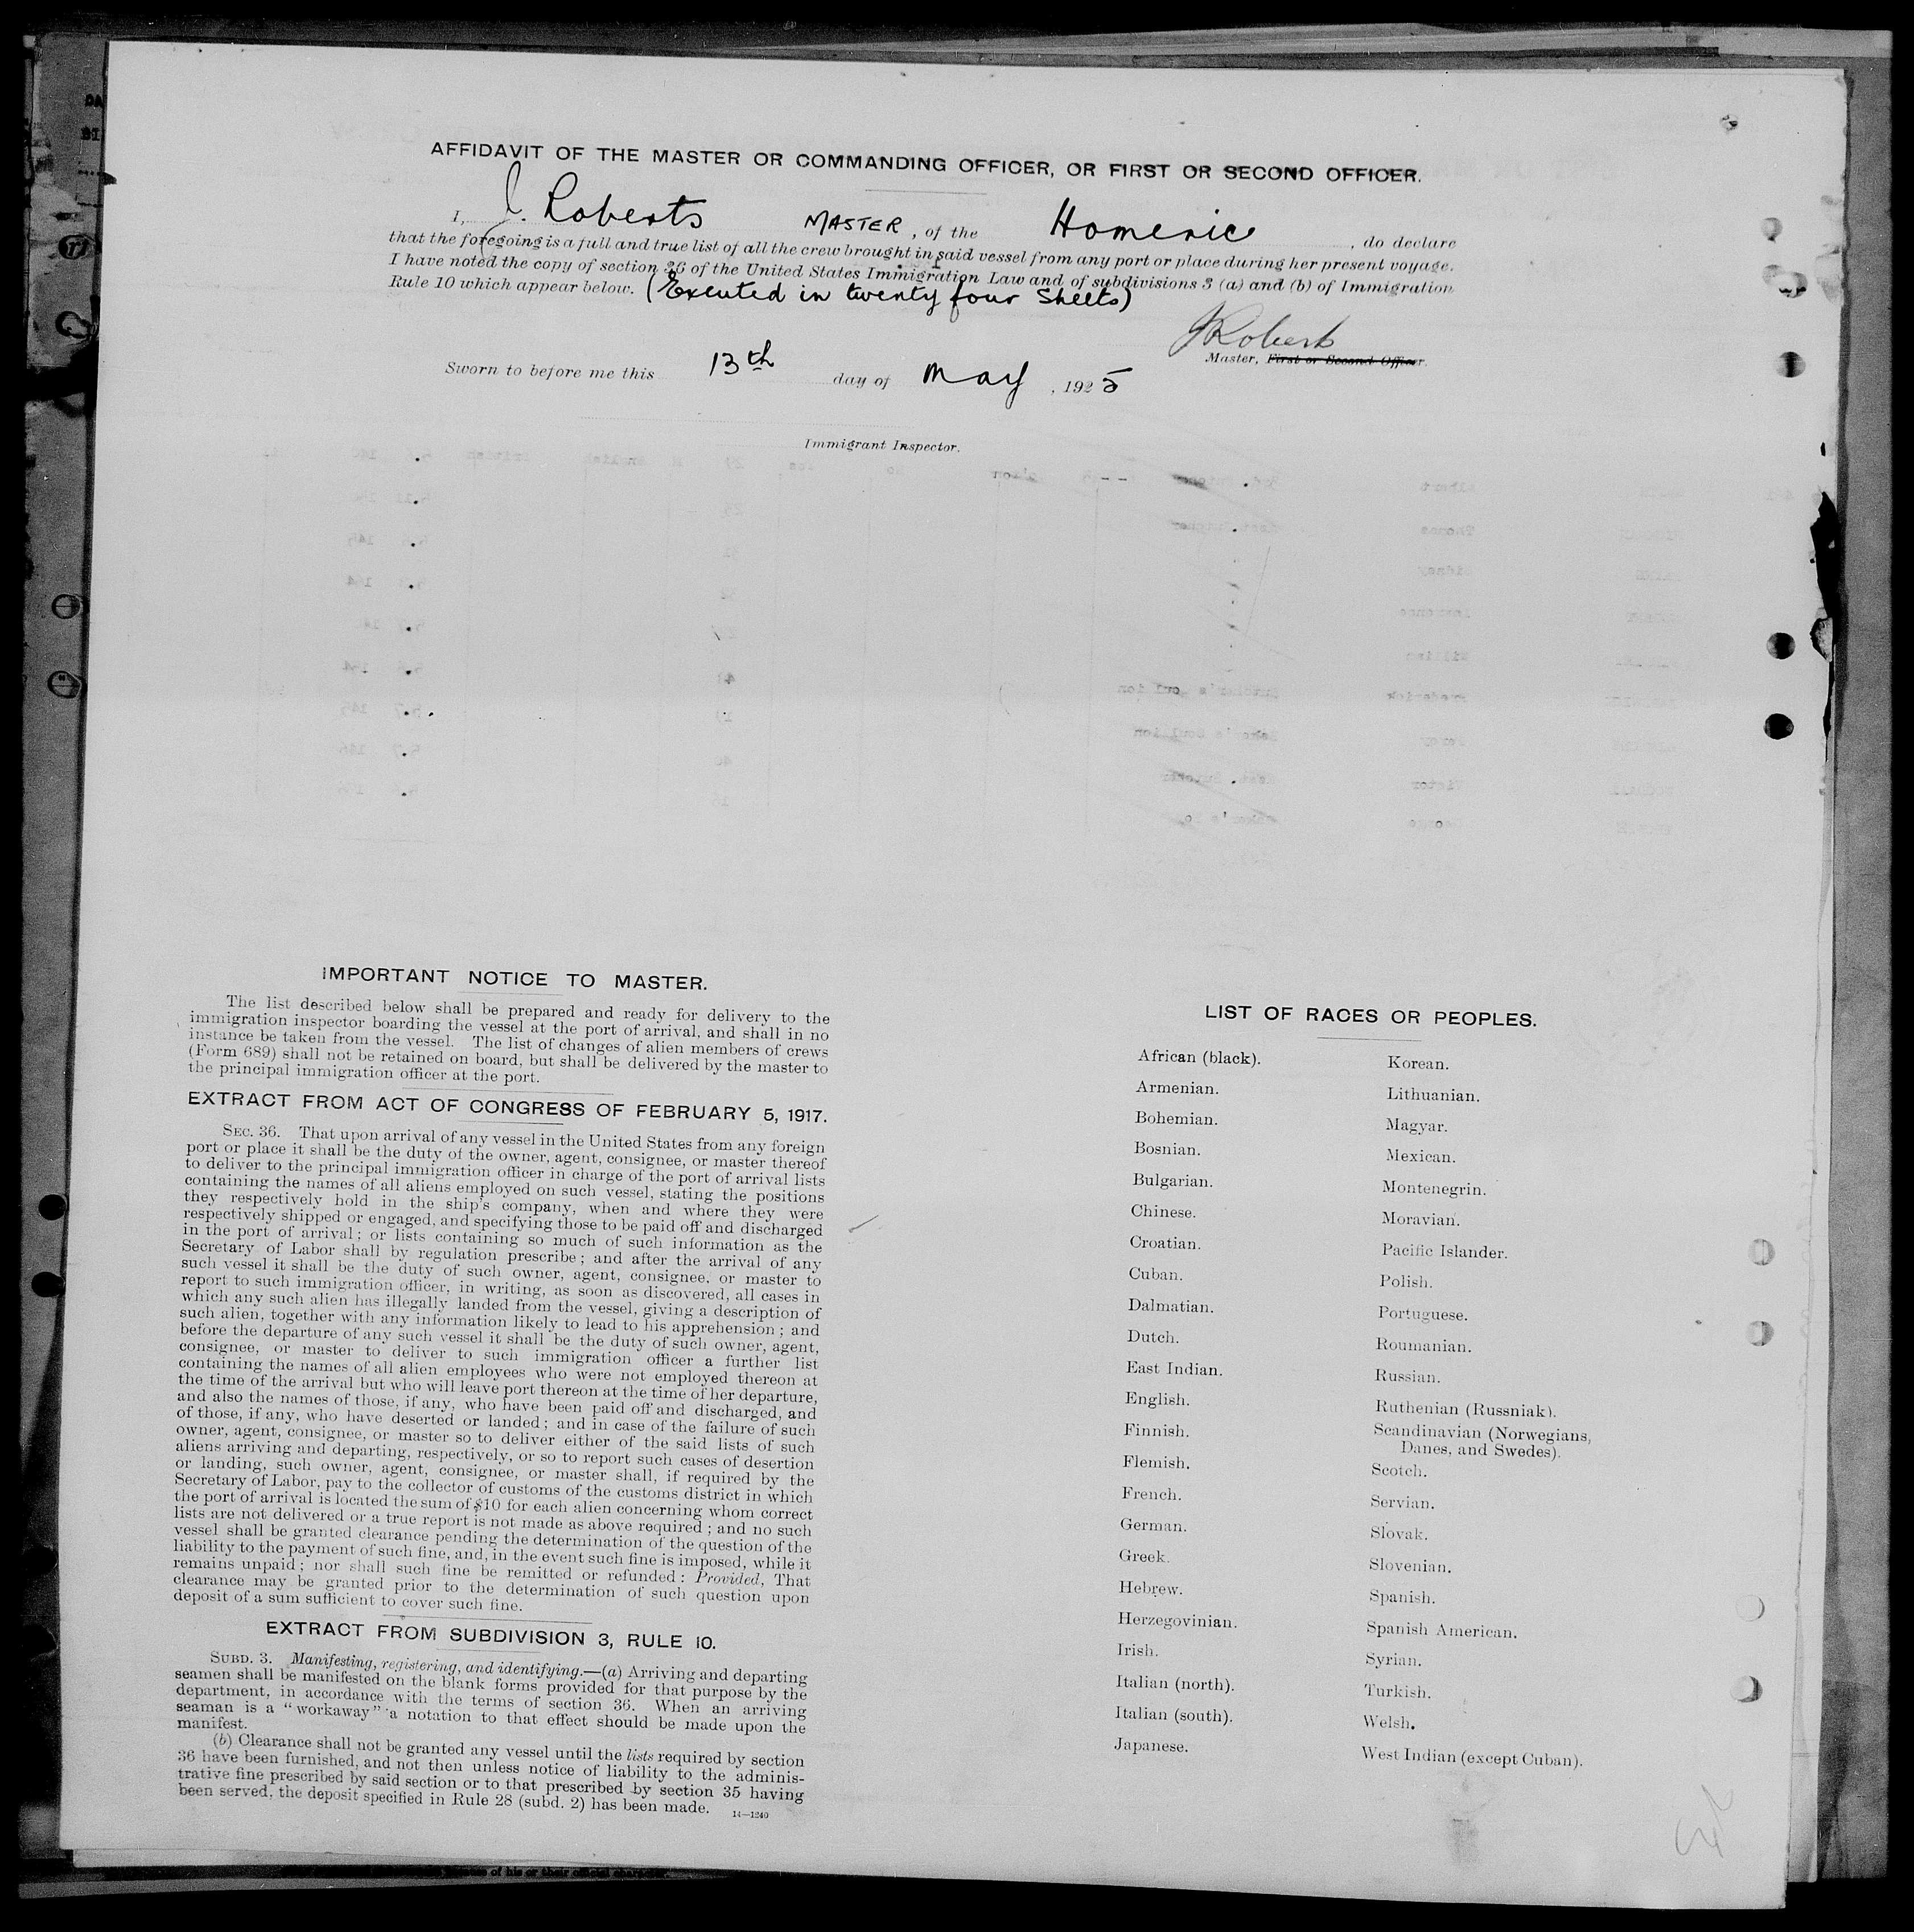 AFFIDAVIT OF THE MASTER OR COMMANDING OFFICER, OR FIRST OR SECOND OFFICER.
I, J. Roberts MASTER, of the Homeric, do declare
that the foregoing is a full and true list of all the crew brought in said vessel from any port or place during her present voyage.
I have noted the copy of section 36 of the United States Immigration Law and of subdivisions 3 (a) and (b) of Immigration
Rule 10 which appear below. (Executed in twenty four Sheets)
JRoberts
Master, First or Second Officer.
Sworn to before me this 13th day of May, 1925
Immigrant Inspector.
IMPORTANT NOTICE TO MASTER.
The list described below shall be prepared and ready for delivery to the
immigration inspector boarding the vessel at the port of arrival, and shall in no
instance be taken from the vessel. The list of changes of alien members of crews
(Form 689) shall not be retained on board, but shall be delivered by the master to
the principal immigration officer at the port.
EXTRACT FROM ACT OF CONGRESS OF FEBRUARY 5, 1917.
SEC. 36. That upon arrival of any vessel in the United States from any foreign
port or place it shall be the duty of the owner, agent, consignee, or master thereof
to deliver to the principal immigration officer in charge of the port of arrival lists
containing the names of all aliens employed on such vessel, stating the positions
they respectively hold in the ship's company, when and where they were
respectively shipped or engaged, and specifying those to be paid off and discharged
in the port of arrival; or lists containing so much of such information as the
Secretary of Labor shall by regulation prescribe; and after the arrival of any
such vessel it shall be the duty of such owner, agent, consignee, or master to
report to such immigration officer, in writing, as soon as discovered, all cases in
which any such alien has illegally landed from the vessel, giving a description of
such alien, together with any information likely to lead to his apprehension; and
before the departure of any such vessel it shall be the duty of such owner, agent,
consignee, or master to deliver to such immigration officer a further list
containing the names of all alien employees who were not employed thereon at
the time of the arrival but who will leave port thereon at the time of her departure,
and also the names of those, if any, who have been paid off and discharged, and
of those, if any, who have deserted or landed; and in case of the failure of such
owner, agent, consignee, or master so to deliver either of the said lists of such
aliens arriving and departing, respectively, or so to report such cases of desertion
or landing, such owner, agent, consignee, or master shall, if required by the
Secretary of Labor, pay to the collector of customs of the customs district in which
the port of arrival is located the sum of $10 for each alien concerning whom correct
lists are not delivered or a true report is not made as above required; and no such
vessel shall be granted clearance pending the determination of the question of the
liability to the payment of such fine, and, in the event such fine is imposed, while it
remains unpaid; nor shall such fine be remitted or refunded: Provided, That
clearance may be granted prior to the determination of such question upon
deposit of a sum sufficient to cover such fine.
EXTRACT FROM SUBDIVISION 3, RULE 10.
SUBD. 3. Manifesting, registering, and identifying.—(a) Arriving and departing
seamen shall be manifested on the blank forms provided for that purpose by the
department, in accordance with the terms of section 36. When an arriving
seaman is a "workaway" a notation to that effect should be made upon the
manifest.
(b) Clearance shall not be granted any vessel until the lists required by section
36 have been furnished, and not then unless notice of liability to the adminis-
trative fine prescribed by said section or to that prescribed by section 35 having
been served, the deposit specified in Rule 28 (subd. 2) has been made. 14—1240
LIST OF RACES OR PEOPLES.
African (black).
Armenian.
Bohemian.
Bosnian.
Bulgarian.
Chinese.
Croatian.
Cuban.
Dalmatian.
Dutch.
East Indian.
English.
Finnish.
Flemish.
French.
German.
Greek.
Hebrew.
Herzegovinian.
Irish.
Italian (north).
Italian (south).
Japanese.
Korean.
Lithuanian.
Magyar.
Mexican.
Montenegrin.
Moravian.
Pacific Islander.
Polish.
Portuguese.
Roumanian.
Russian.
Ruthenian (Russniak).
Scandinavian (Norwegians,
Danes, and Swedes).
Scotch.
Servian.
Slovak.
Slovenian.
Spanish.
Spanish American.
Syrian.
Turkish.
Welsh.
West Indian (except Cuban).